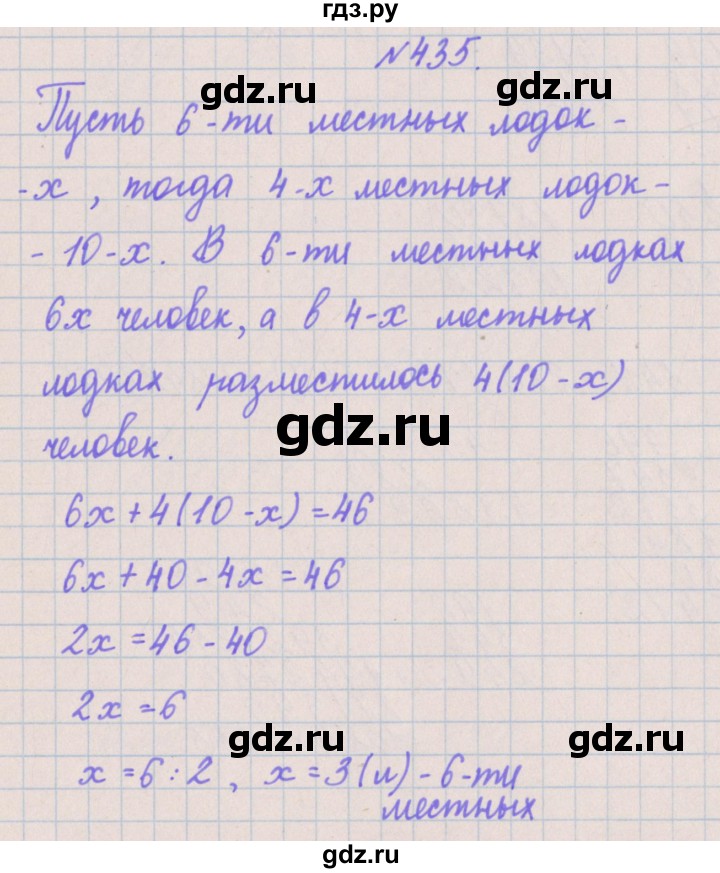 гдз.ру
№435.
gdz.ru gdz.ru
Пусть 6-ти местных лодок -
-х, тогда 4-х местных лодок-
- 10-х. В 6-ти местных лодках
6х человек, а в 4-х местных
лодках разместилось 4(10-х)
gdz.ru
человек.
6х+4(10-х)=46
6х+40-4х=46
2х=46-40
2х=6
gdz.ru gdz.ru
х=6:2, х=3(л)-6-ти
местных
gdz.ru